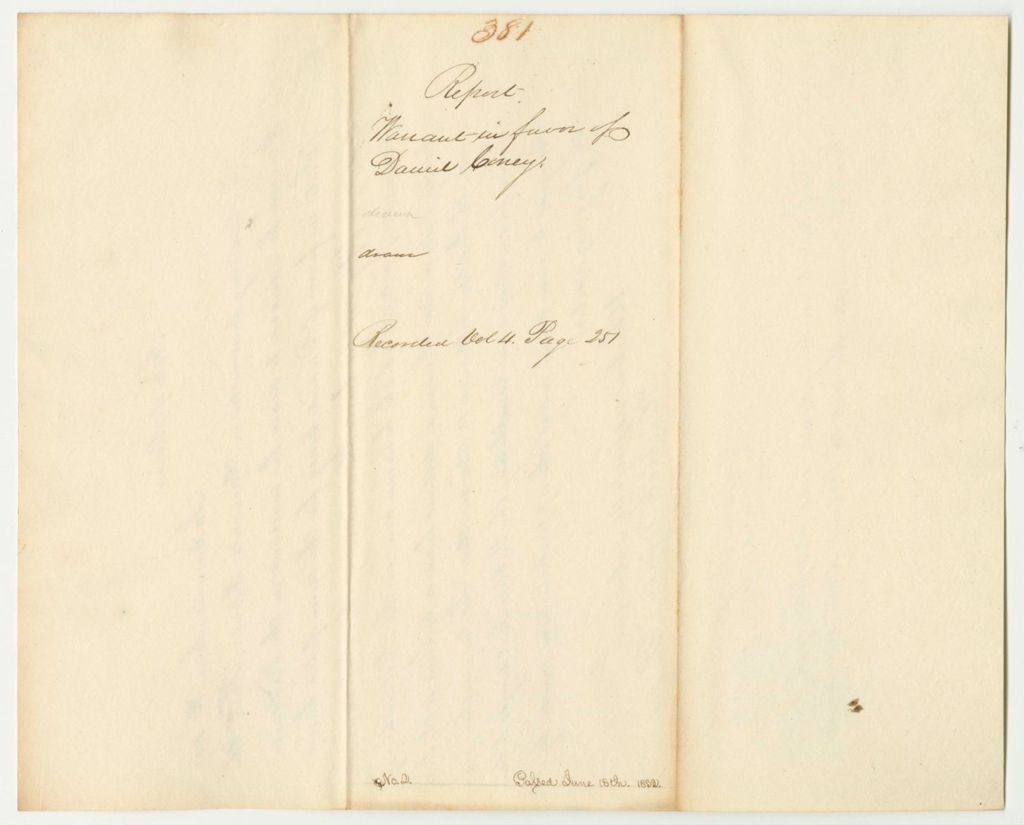 381
Report.
Warrant in favor of
Daniel Coney.
drawn
drawn
Recorded Vol 4. Page 251
No. 2. Passed June 18th. 1832.